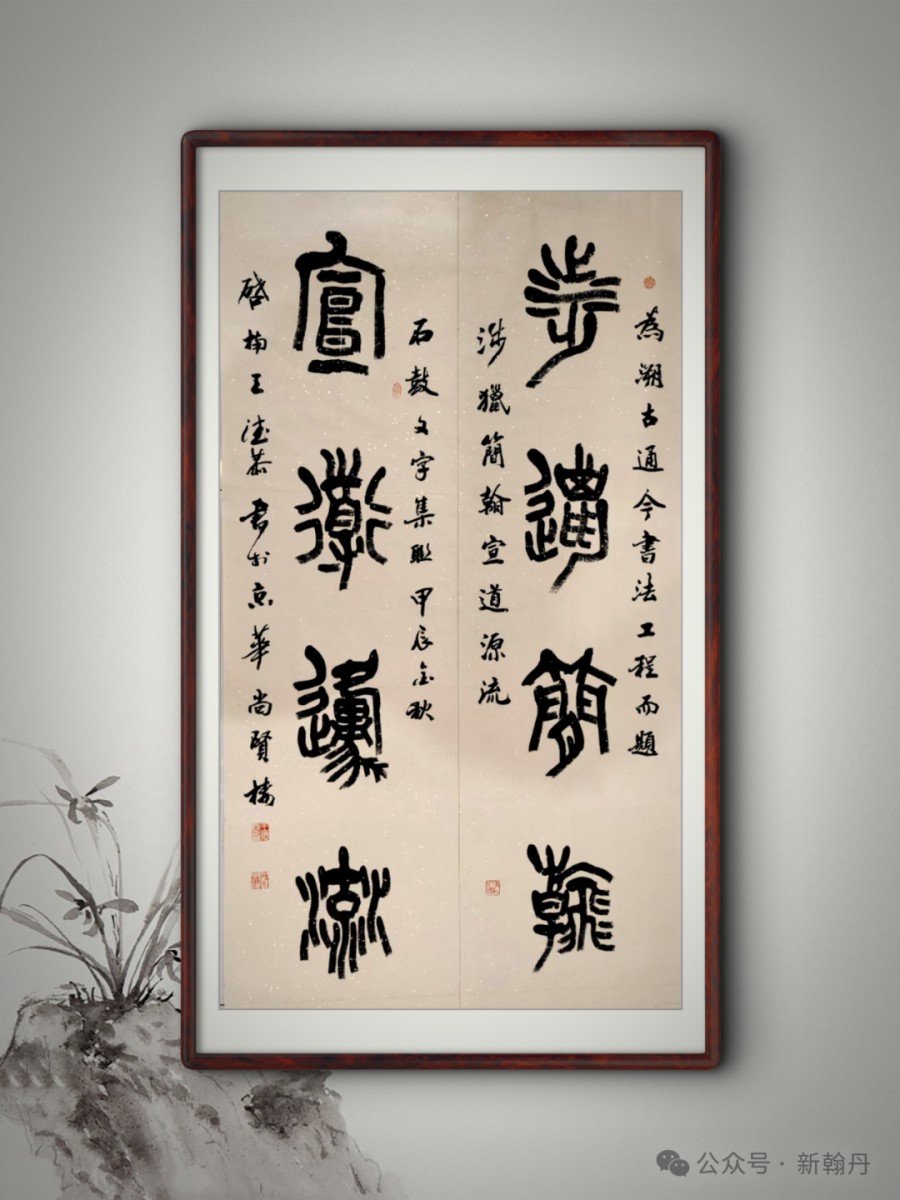 為溯古通今書法工程而題
涉邋簡翰
涉獵簡翰宣道源流
石鼓文字集聯甲辰金秋
宣衜邍流
楠王恭書於京華尚賢樓
公众号·新翰丹